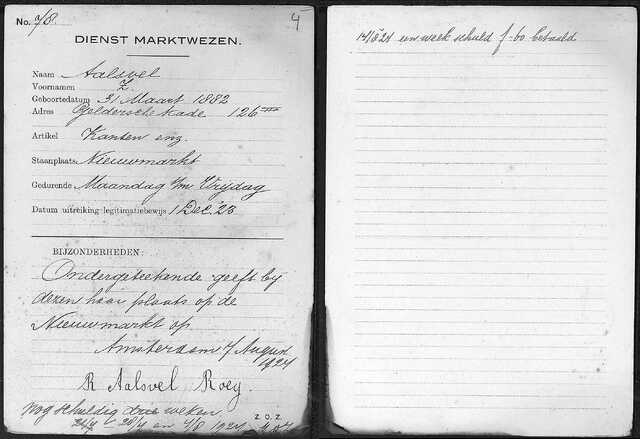 No. 78.
4
DIENST MARKTWEZEN.
Naam Aalsvel
Voornamen Z.
Geboortedatum 31 Maart 1882
Adres Geldersche kade 126 III
Artikel Kanten enz.
Staanplaats Nieuwmarkt
Gedurende Maandag t/m Vrijdag
Datum uitreiking legitimatiebewijs 1 Dec. '23
BIJZONDERHEDEN:
Ondergeteekende geeft bij
dezen haar plaats op de
Nieuwmarkt op
Amsterdam 7 August
1924
R Aalsvel Roeg.
nog schuldig drie weken
Z.O.Z.
21/7 28/7 en 4/8 1924
14/8 24 een week schuld f -60 betaald